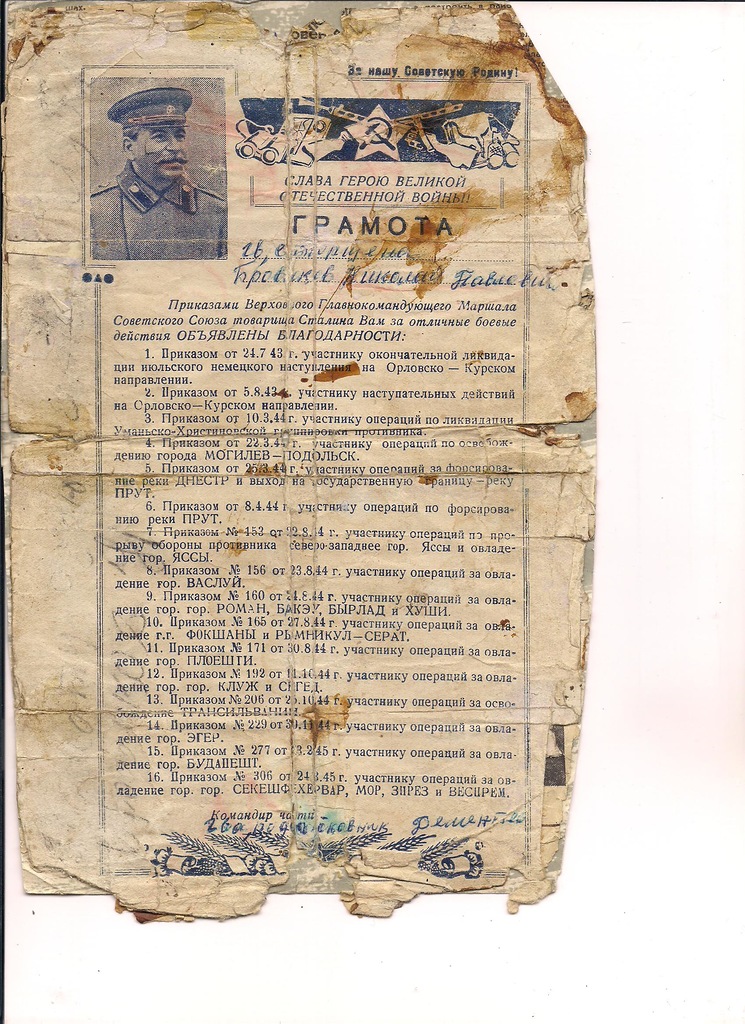 За нашу Советскую Родину!
СЛАВА ГЕРОЮ ВЕЛИКОЙ
ОТЕЧЕСТВЕННОЙ ВОЙНЫ!
ГРАМОТА
гв. старшина
Николай Павлович
Приказами Верховного Главнокомандующего Маршала
Советского Союза товарища Сталина Вам за отличные боевые
действия ОБЪЯВЛЕНЫ БЛАГОДАРНОСТИ:
1. Приказом от 24.7 43 г. участнику окончательной ликвида-
ции июльского немецкого наступления на Орловско — Курском
направлении.
2. Приказом от 5.8.43 г. участнику наступательных действий
на Орловско—Курском направлении.
3. Приказом от 10.3.44 г. участнику операций по ликвидации
Уманьско-Христиновской группировки противника.
4. Приказом от 22.3.44 г. участнику операций по освобож-
дению города МОГИЛЕВ—ПОДОЛЬСК.
5. Приказом от 25.3.44 г. участнику операций за форсирова-
ние реки ДНЕСТР и выход на государственную границу—реку
ПРУТ.
6. Приказом от 8.4.44 г. участнику операций по форсирова-
нию реки ПРУТ.
7. Приказом № 153 от 22.8.44 г. участнику операций по про-
рыву обороны противника северо-западнее гор. Яссы и овладе-
ние гор. ЯССЫ.
8. Приказом № 156 от 23.8.44 г. участнику операций за овла-
дение гор. ВАСЛУЙ.
9. Приказом № 160 от 24.8.44 г. участнику операций за овла-
дение гор. гор. РОМАН, БАКЭУ, БЫРЛАД и ХУШИ.
10. Приказом № 165 от 27.8.44 г. участнику операций за овла-
дение г.г. ФОКШАНЫ и РЫМНИКУЛ—СЕРАТ.
11. Приказом № 171 от 30.8.44 г. участнику операций за овла-
дение гор. ПЛОЕШТИ.
12. Приказом № 192 от 11.10.44 г. участнику операций за овла-
дение гор. гор. КЛУЖ и СЕГЕД.
13. Приказом № 206 от 25.10.44 г. участнику операций за осво-
бождение ТРАНСИЛЬВАНИИ.
14. Приказом № 229 от 30.11.44 г. участнику операций за овла-
дение гор. ЭГЕР.
15. Приказом № 277 от 13.2.45 г. участнику операций за овла-
дение гор. БУДАПЕШТ.
16. Приказом № 306 от 24.3.45 г. участнику операций за ов-
ладение гор. гор. СЕКЕШФЕХЕРВАР, МОР, ЗИРЕЗ и ВЕСПРЕМ.
Командир части —
гвардии полковник Дементьев